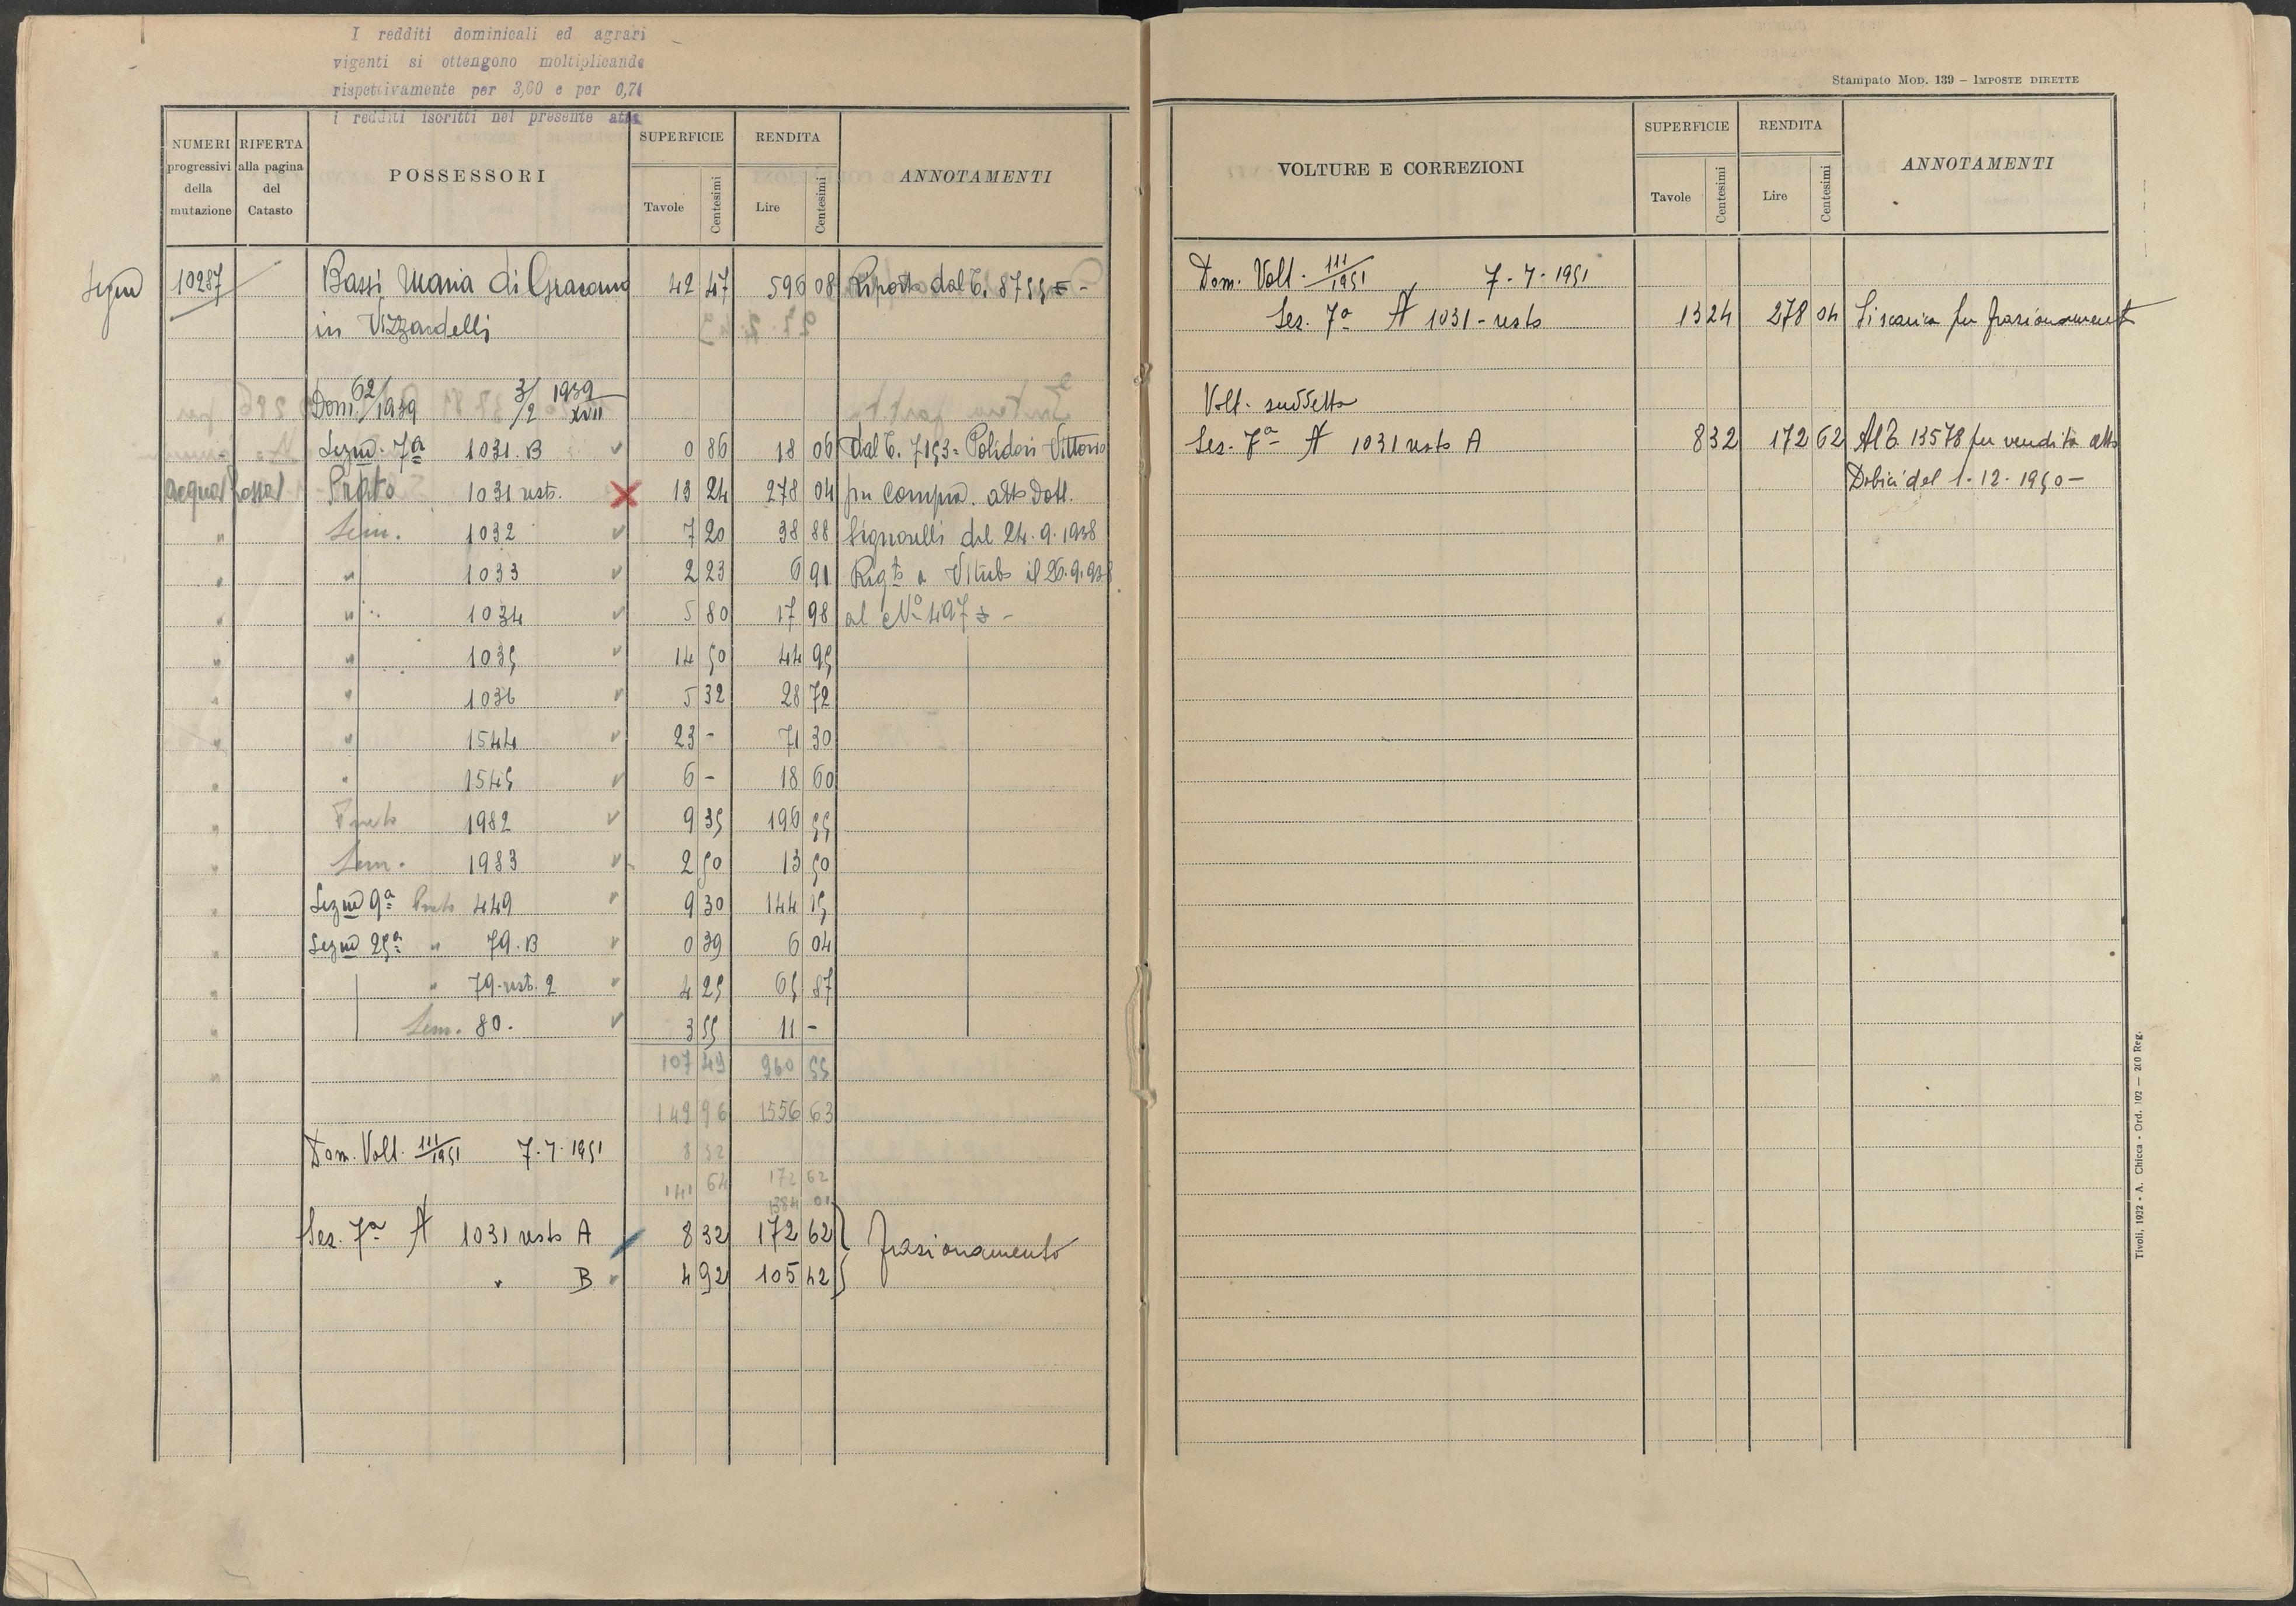 I redditi dominicali ed agrari
vigenti si ottengono moltiplicando
rispettivamente per 3,60 e per 0,71
i redditi iscritti nel presente atto
NUMERI progressivi della mutazione
RIFERTA alla pagina del Catasto
POSSESSORI
SUPERFICIE
Tavole Centesimi
RENDITA
Lire Centesimi
ANNOTAMENTI
Segue 10287 Bassi Maria di Giacomo 42 47 596 08 Riporto dal C. 8755 -
in Vizzardelli
Dom. 62/1939 3/2 1939 XVII
Sezne 7a 1031.B 0 86 18 06 dal C. 7153 = Polidori Vittorio
Acqua Rossa Prato 1031 resto. X 13 24 278 04 per compra. atto Dott.
" Sem. 1032 7 20 38 88 Signorelli del 24.9.1938
" " 1033 2 23 6 91 Regto a Viterbo il 26.9.938
" " 1034 5 80 17 98 al No 497 -
" " 1035 14 50 44 95
" " 1036 5 32 28 72
" " 1544 23 - 71 30
" " 1545 6 - 18 60
" Prato 1982 9 35 196 55
" Sem. 1983 2 50 13 50
" Sezne 9a Prato 449 9 30 144 15
" Sezne 25a " 79.B 0 39 6 04
" " 79-resto.2 4 25 65 87
" Sem. 80. 3 55 11 -
" 107 49 960 55
149 96 1556 63
Dom. Volt. 111/1951 7.7.1951 8 32
172 62
141 64
1384 01
Sez. 7a A 1031 resto A 8 32 172 62 frazionamento
" B 4 92 105 42
Stampato Mod. 139 – Imposte dirette
VOLTURE E CORREZIONI
SUPERFICIE
Tavole Centesimi
RENDITA
Lire Centesimi
ANNOTAMENTI
Dom. Volt. 111/1951 7-7-1951
Sez. 7a A 1031 - resto 13 24 278 04 Si scarica per frazionamento
Volt. suddetta
Sez. 7a A 1031 resto A 8 32 172 62 Al C. 13578 per vendita atto
Dobici del 1.12.1950 -
Tivoli, 1932 - A. Chicca - Ord. 102 — 200 Reg.